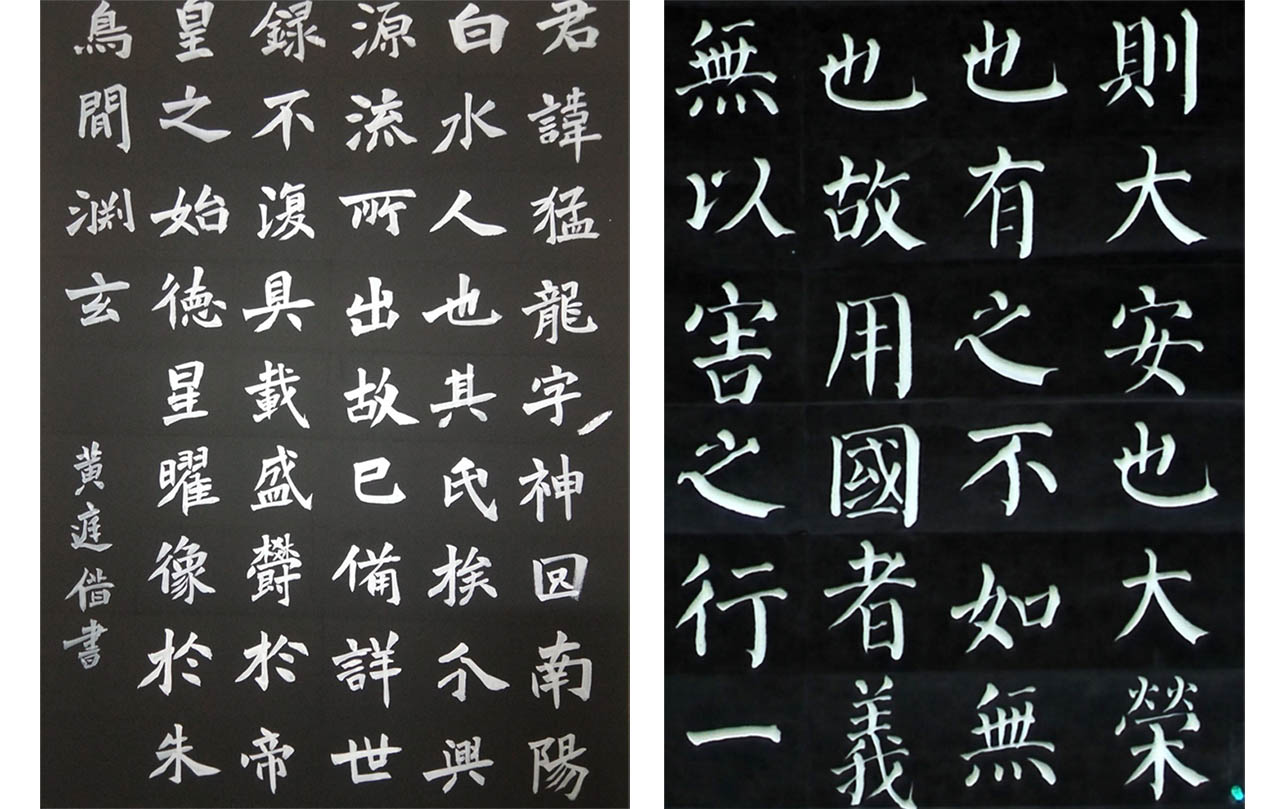 君諱猛龍字神囧南陽
白水人也其氏族分興
源流所出故已備詳世
録不復具載盛欝於帝
皇之始德星曜像於朱
鳥間渕玄
黄庭借書
則大安也大榮
也有之不如無
也故用國者義
無以害之行一